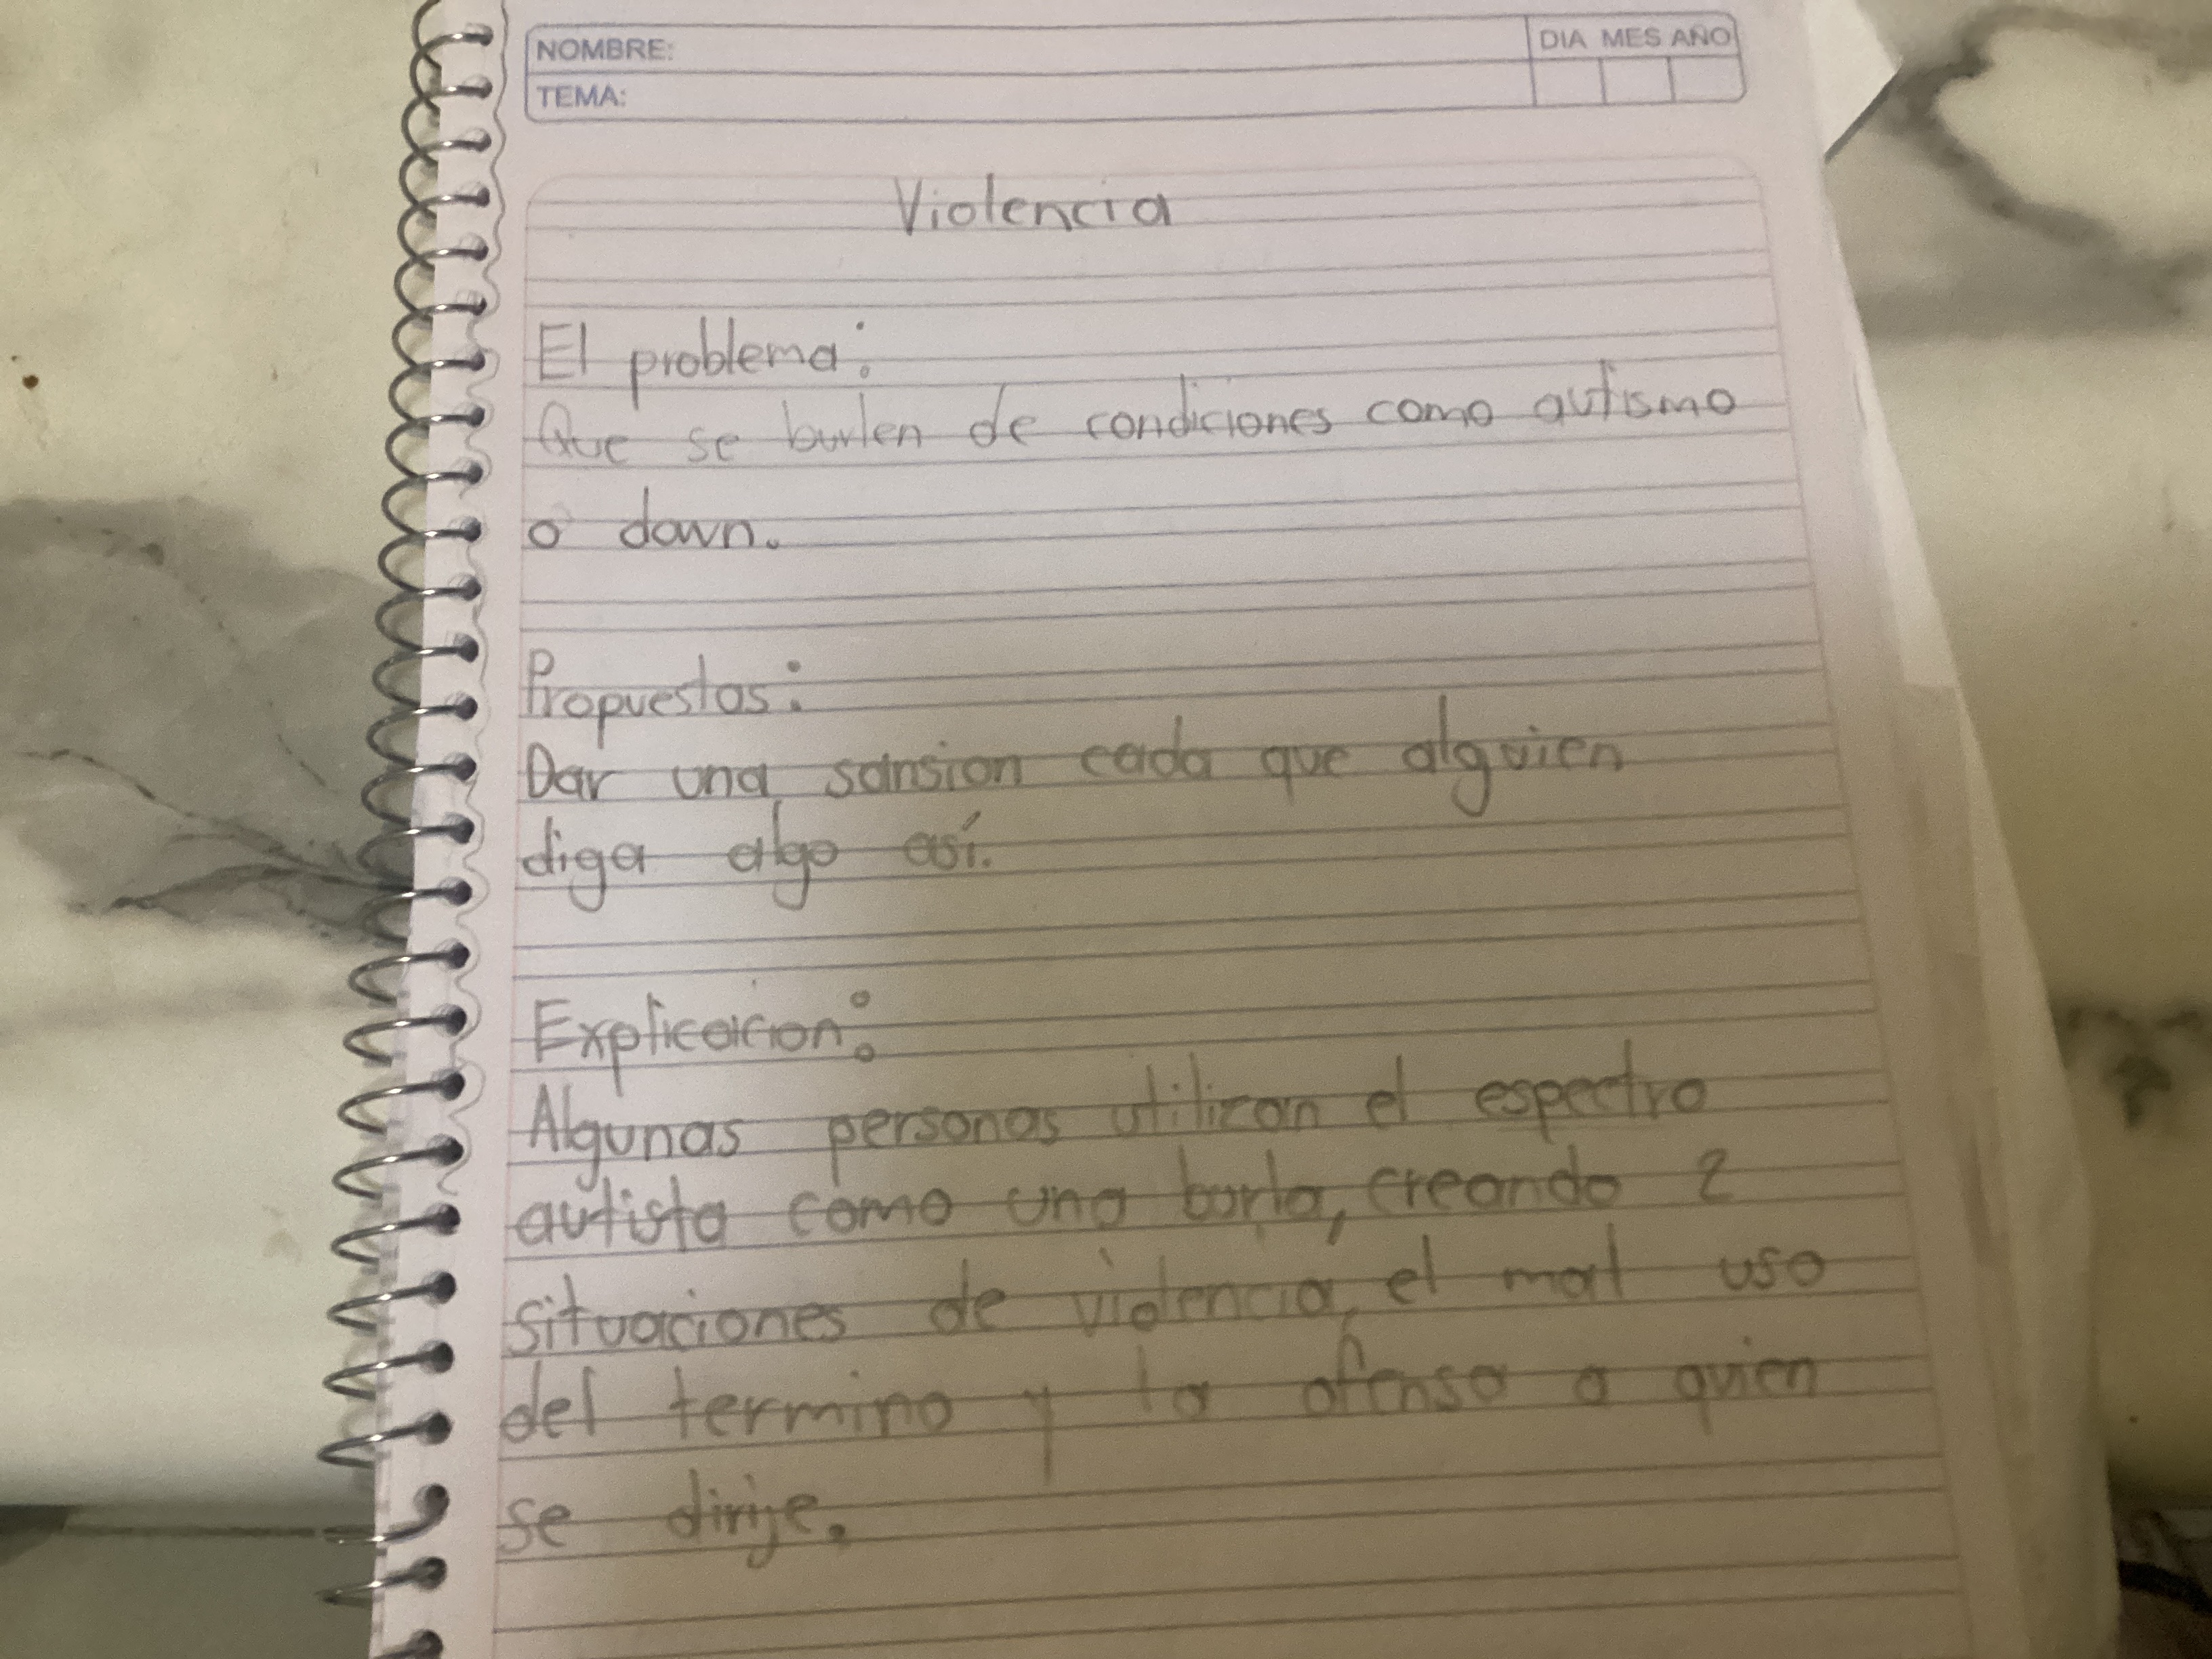 NOMBRE:
DIA MES AÑO
TEMA:
Violencia
El problema:
Que se burlen de condiciones como autismo
o down.
Propuestas:
Dar una sansion cada que alguien
diga algo así.
Explicacion:
Algunas personas utilizan el espectro
autista como una burla, creando 2
situaciones de violencia, el mal uso
del termino y la ofensa a quien
se dirije.